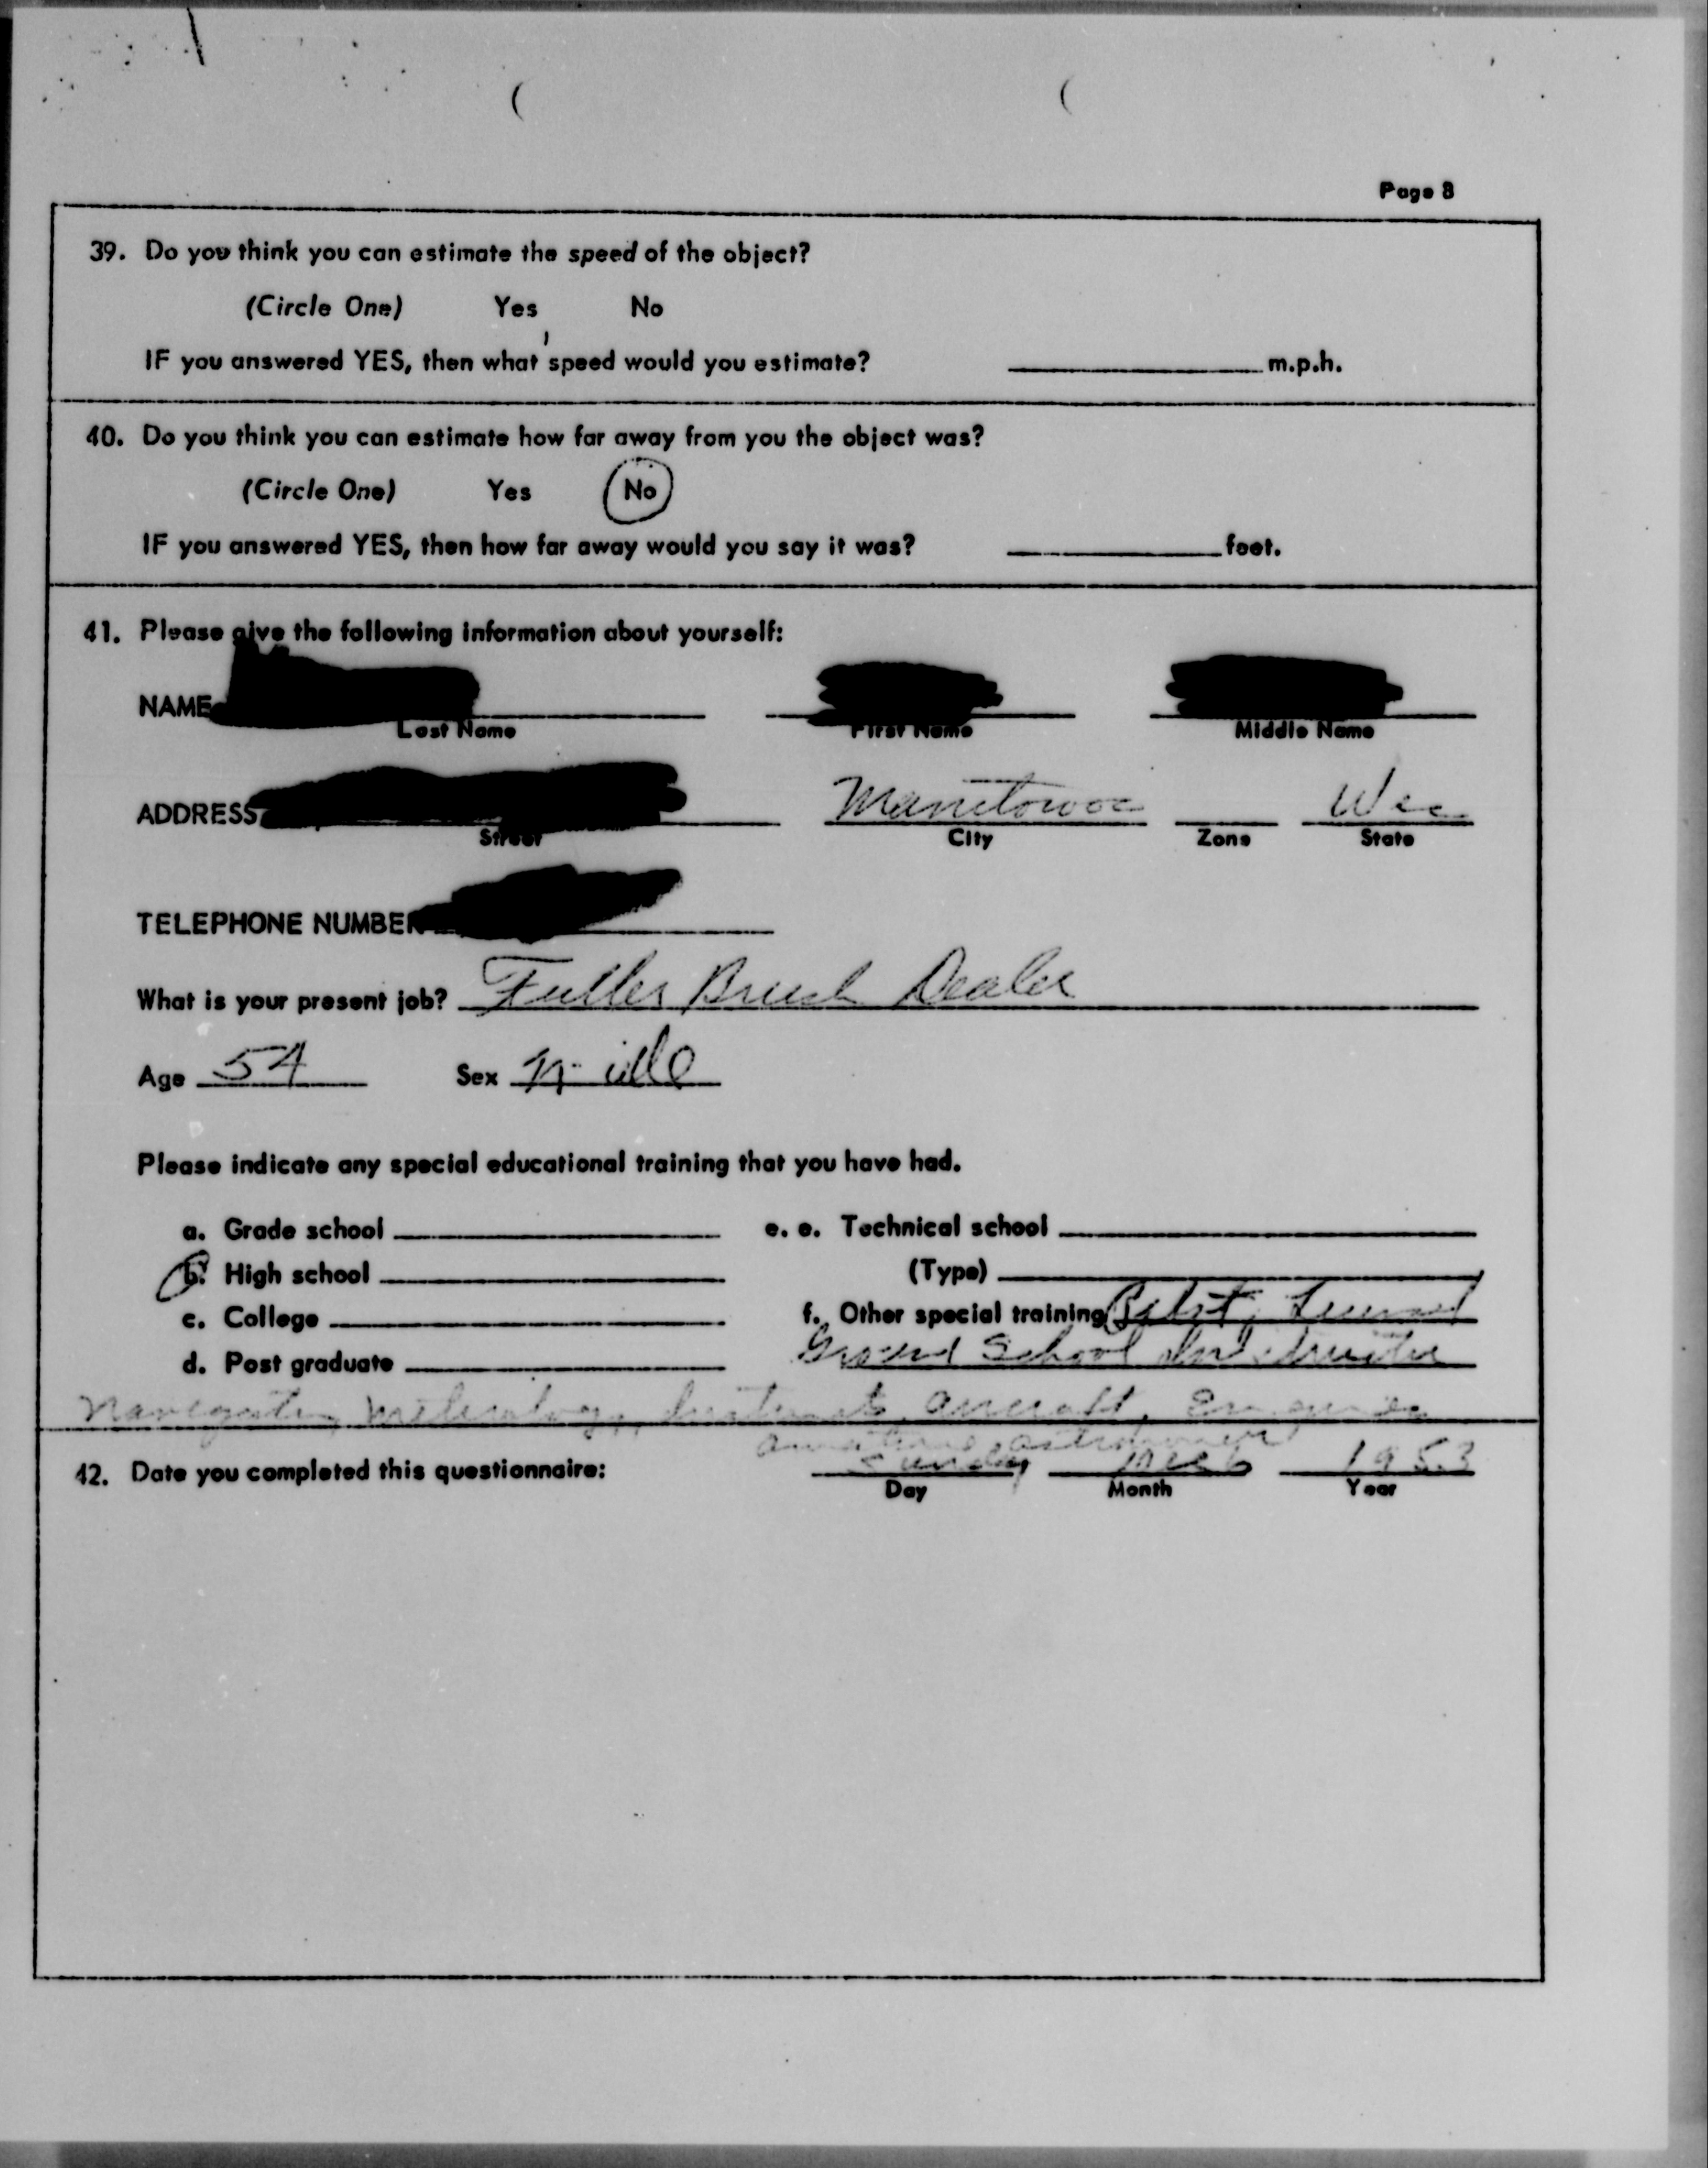 Page 8
39. Do you think you can estimate the speed of the object?
(Circle One) Yes No
IF you answered YES, then what speed would you estimate? m.p.h.
40. Do you think you can estimate how far away from you the object was?
(Circle One) Yes No
IF you answered YES, then how far away would you say it was? feet.
41. Please give the following information about yourself:
NAME
Last Name First Name Middle Name
ADDRESS Manitowoc Wis
Street City Zone State
TELEPHONE NUMBER
What is your present job? Fuller Brush Dealer
Age 54 Sex Male
Please indicate any special educational training that you have had.
a. Grade school e. e. Technical school
b. High school (Type)
c. College f. Other special training Pilot,
d. Post graduate Ground School Instructor
Navigation, aircraft, Engines
amateur astronomer
42. Date you completed this questionnaire: Sunday Dec 6 1953
Day Month Year